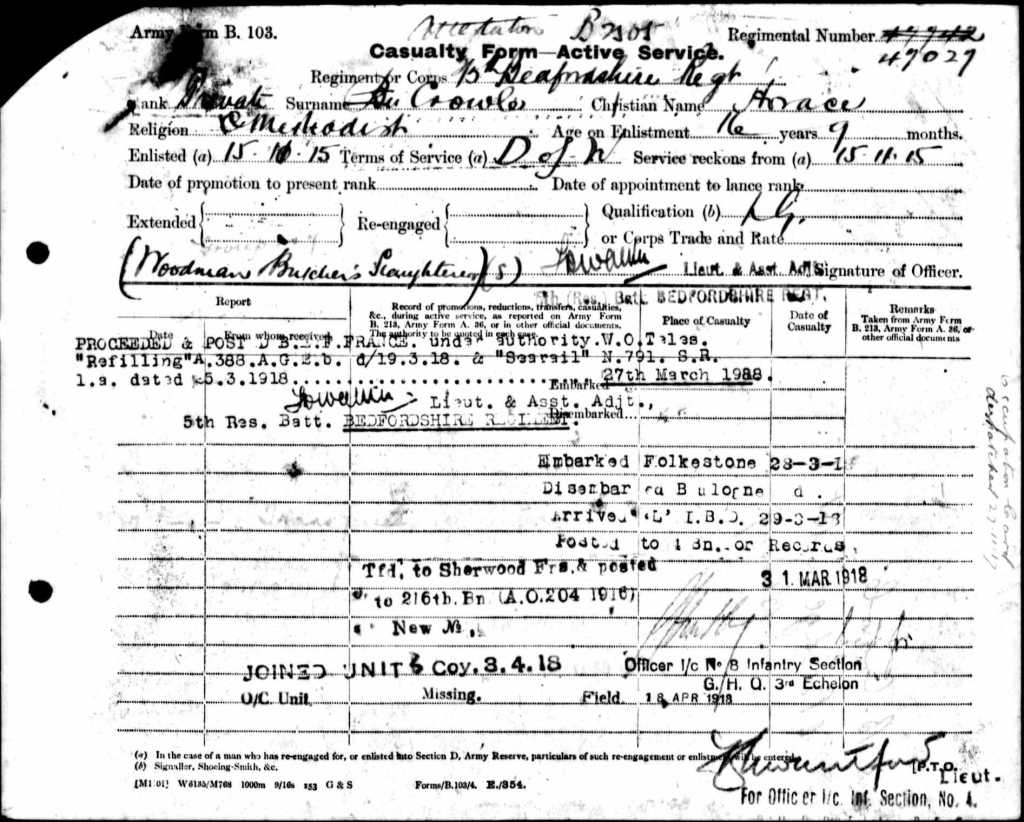 Army Form B. 103.
Casualty Form—Active Service.
Regimental Number 47942
49029
Regiment or Corps Bedfordshire Regt
Rank Private Surname Crowle Christian Name Horace
Religion Methodist Age on Enlistment 16 years 9 months.
Enlisted (a) 15.11.15 Terms of Service (a) D of W Service reckons from (a) 15.11.15
Date of promotion to present rank Date of appointment to lance rank
Extended Re-engaged Qualification (b)
or Corps Trade and Rate
(Woodman Butcher's Slaughterer)(S) Lieut. & Asst. Adjt. Signature of Officer.
5th (Res.) Batt. BEDFORDSHIRE REGT.
Report
Date From whom received
Record of promotions, reductions, transfers, casualties, &c., during active service, as reported on Army Form B. 213, Army Form A. 36, or in other official documents. The authority to be quoted in each case.
Place of Casualty
Date of Casualty
Remarks
Taken from Army Form B. 213, Army Form A. 36, or other official documents
PROCEEDED & POST D B.E.F. FRANCE. under authority.W.O.Teles.
"Refilling"A.388.A.G.2.b. d/19.3.18. & N.791. S.R.
1.a. dated 25.3.1918. Embarked 27th March 1918.
Lieut. & Asst. Adjt.,
Disembarked
5th Res. Batt. BEDFORDSHIRE REGIMENT.
Embarked Folkestone 28-3-1
Disembar ed B ulogne d .
Arrived 'L' I.B.D. 29-3-18
Posted to 1 Bn. or Records,
Tfd. to Sherwood Frs.& posted
31. MAR 1918
to 216th. Bn (A.O.204 1916)
New No.,
JOINED UNIT Coy. 3.4.18
Officer I/c No 8 Infantry Section
G. H. Q. 3rd Echelon
O/C. Unit Missing. Field. 18 APR 1918
(a) In the case of a man who has re-engaged for, or enlisted into Section D, Army Reserve, particulars of such re-engagement or enlistment will be entered.
(b) Signaller, Shoeing-Smith, &c.
[P.T.O.
Lieut.
1000m 9/16s 153 G & S Forms/B.103/4. E./354.
For Officer I/c. Inf. Section, No. 4.